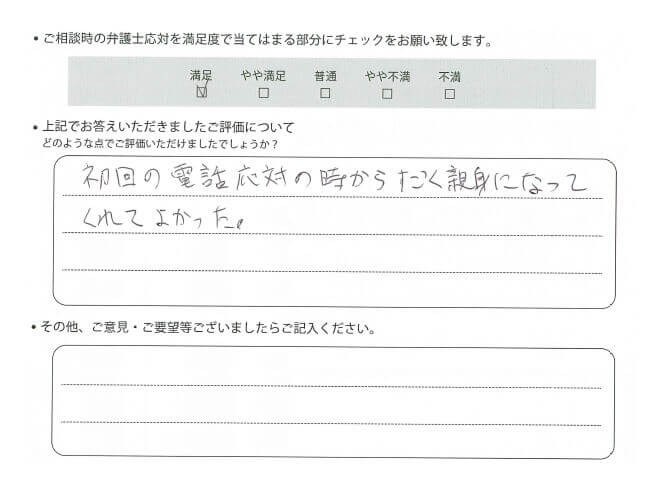 • ご相談時の弁護士応対を満足度で当てはまる部分にチェックをお願い致します。
満足 やや満足 普通 やや不満 不満
☑ □ □ □ □
• 上記でお答えいただきましたご評価について
どのような点でご評価いただけましたでしょうか？
初回の電話応対の時から すごく親身になって
くれてよかった。
• その他、ご意見・ご要望等ございましたらご記入ください。